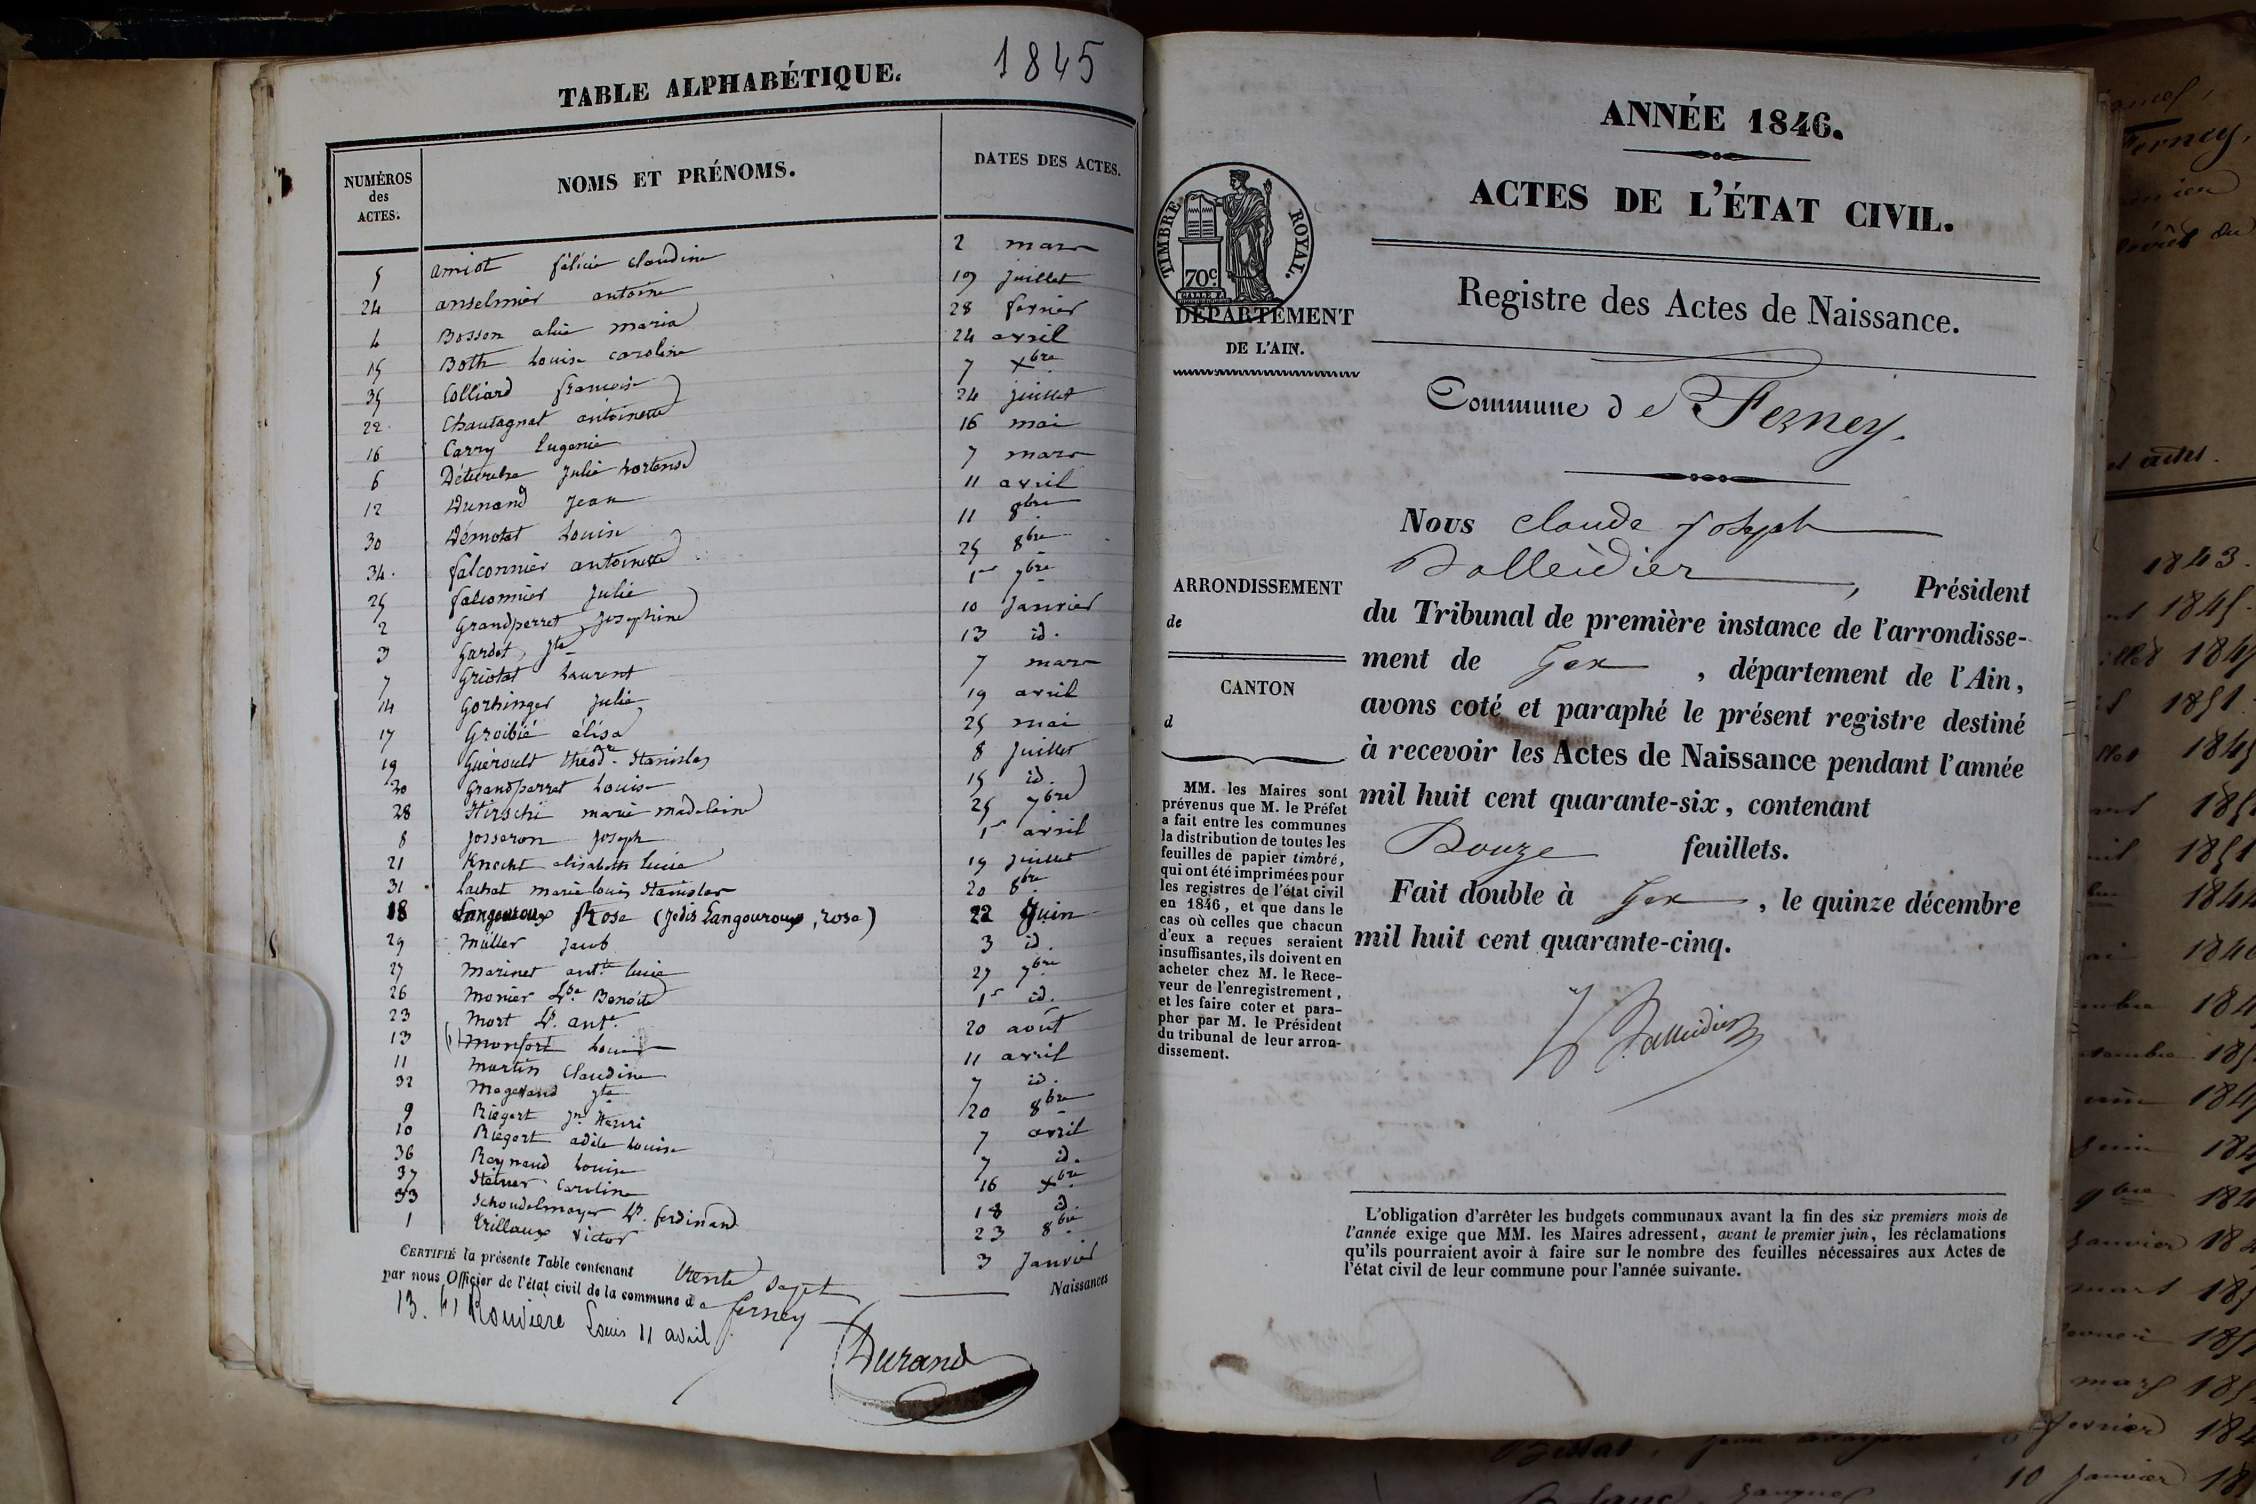 TABLE ALPHABÉTIQUE. 1845
NUMÉROS des ACTES. NOMS ET PRÉNOMS. DATES DES ACTES.
5 amiot félicie claudine 2 mars
24 anselmier antoine 19 juillet
4 Bosson alice maria 28 fevrier
15 Both Louise caroline 24 avril
35 Colliard françoise 7 Xbre
22 Chautagnat antoinette 24 juillet
16 Carry Eugenie 16 mai
6 Julie hortense 7 mars
12 Dunand Jean 11 avril
30 Démotat Louise 11 8bre
34 falconnier antoinette 25 8bre
25 falconnier Julie 1er 7bre
2 Grandperret Josephine 10 Janvier
3 Gardet Jte 13 id.
7 Griotat Laurent 7 mars
14 Gorhinger Julie 19 avril
17 Groibié élisa 25 mai
19 Guéroult théodre Stanislas 8 Juillet
20 Grandperret Louise 15 id.
28 Hirschi marie madeleine 25 7bre
8 Josseron Joseph 1er avril
21 Knecht elisabeth lucie 19 juillet
31 Lachat marie louis Stanislas 20 8bre
18 Langouroux Rose (jedis Langouroux, rose) 22 Juin
29 Müller Jacob 3 id.
27 Marinet antte lucie 27 7bre
26 Monier Lse Benoite 1er id.
23 Mort Ls. ante. 20 août
13 (1) Monfort Louis 11 avril
11 Martin Claudine 7 id.
32 Magerand Jte 20 8bre
9 Riegert Jn Henri 7 avril
10 Riegert adèle Louise 7 id.
36 Raynaud Louise 16 Xbre
37 Steiner Caroline 18 id.
33 Schoudelmayer Ls. ferdinand 23 8bre
1 Vrillaux Victor 3 Janvier
CERTIFIÉ la présente Table contenant trente sept Naissances
par nous Officier de l'état civil de la commune de ferney
13. (1) Rouvière Louis 11 avril
Durand
ANNÉE 1846.
ACTES DE L'ÉTAT CIVIL.
TIMBRE ROYAL.
70c.
DÉPARTEMENT
DE L'AIN.
Registre des Actes de Naissance.
Commune de Ferney.
Nous Claude Joseph
Balleidier, Président
du Tribunal de première instance de l'arrondisse-
ment de Gex, département de l'Ain,
avons coté et paraphé le présent registre destiné
à recevoir les Actes de Naissance pendant l'année
mil huit cent quarante-six, contenant
Douze feuillets.
Fait double à Gex, le quinze décembre
mil huit cent quarante-cinq.
Balleidier
ARRONDISSEMENT
de
CANTON
d
MM. les Maires sont
prévenus que M. le Préfet
a fait entre les communes
la distribution de toutes les
feuilles de papier timbré,
qui ont été imprimées pour
les registres de l'état civil
en 1846, et que dans le
cas où celles que chacun
d'eux a reçues seraient
insuffisantes, ils doivent en
acheter chez M. le Rece-
veur de l'enregistrement,
et les faire coter et para-
pher par M. le Président
du tribunal de leur arron-
dissement.
L'obligation d'arrêter les budgets communaux avant la fin des six premiers mois de
l'année exige que MM. les Maires adressent, avant le premier juin, les réclamations
qu'ils pourraient avoir à faire sur le nombre des feuilles nécessaires aux Actes de
l'état civil de leur commune pour l'année suivante.
Ferney,
1843.
1845.
1851
10 Janvier